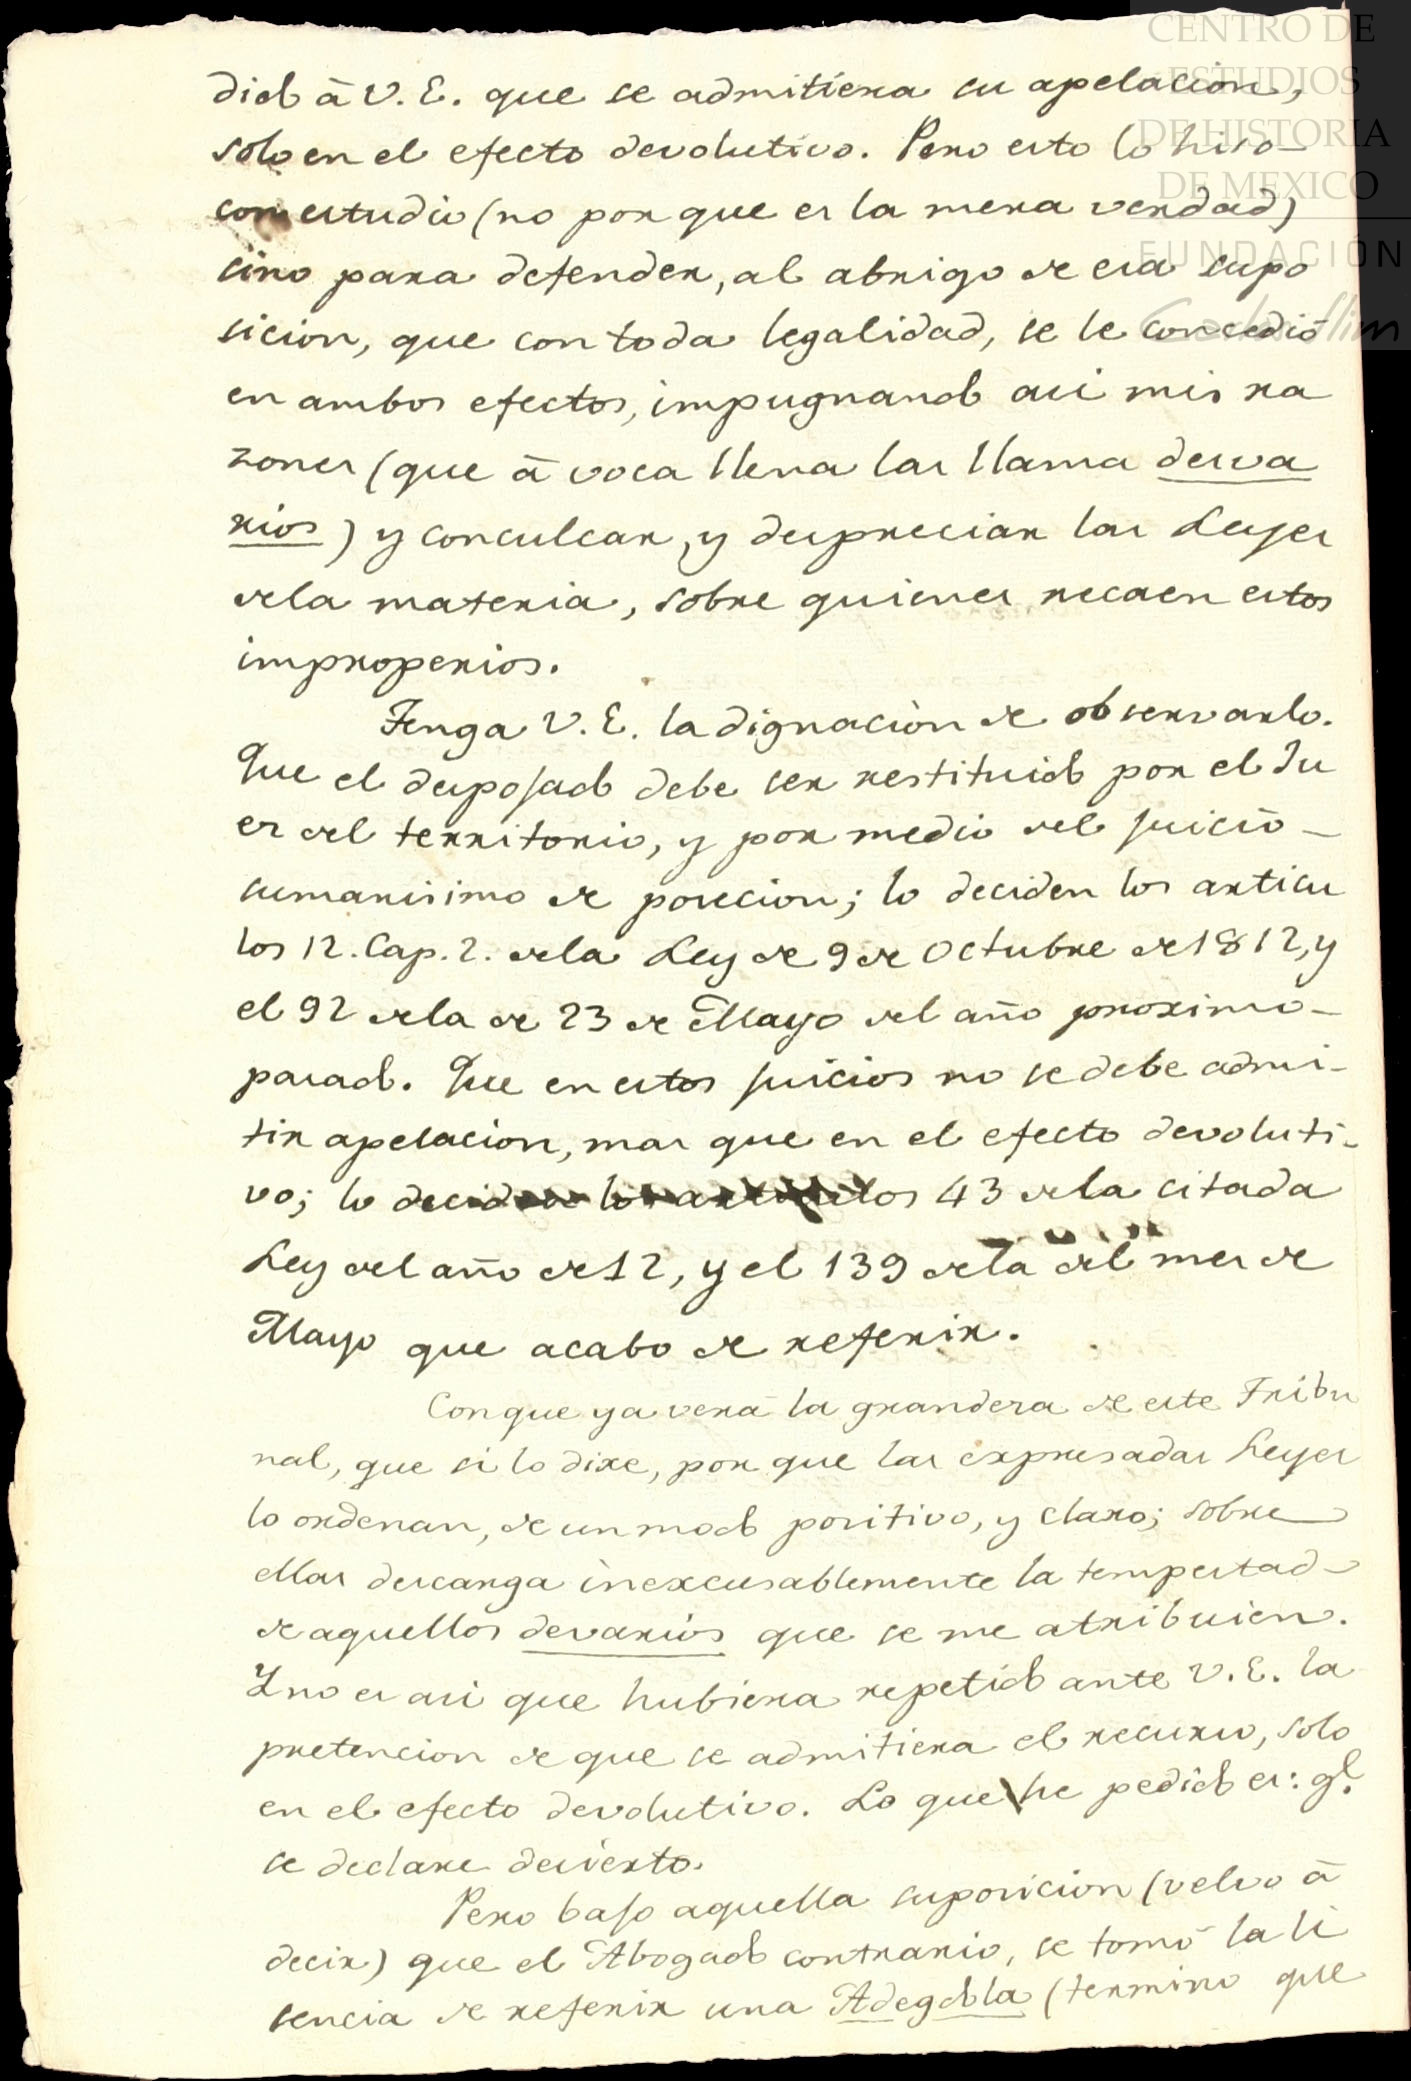 CENTRO DE
ESTUDIOS
DE HISTORIA
DE MEXICO
FUNDACIÓN
Carlos Slim
dido â V. E. que se admitiera su apelacion,
solo en el efecto devolutivo. Pero esto lo hiso
con estudio (no por que es la mera verdad)
sino para defender, al abrigo de esa supo
sicion, que con toda legalidad, se le concedió
en ambos efectos, impugnando asi mis ra
zones (que â voca llena las llama desva
rios) y conculcar, y despreciar las Leyes
dela materia, sobre quienes recaen estos
improperios.
Tenga V. E. la dignacion de observarlo.
Que el despojado debe ser restituido por el Ju
es del territorio, y por medio del juicio
sumarisimo de posecion; lo deciden los articu
los 12. Cap. 2. dela Ley de 9 de Octubre de 1812, y
el 92 dela de 23 de Mayo del año proximo
pasado. Que en estos juicios no se debe admi-
tir apelacion, mas que en el efecto devoluti-
vo; lo deciden los articulos 43 dela citada
Ley del año de 12, y el 139 dela del mes de
Mayo que acabo de referir.
Conque ya verá la grandesa de este Tribu
nal, que si lo dixe, por que las expresadas Leyes
lo ordenan, de un modo positivo, y claro; sobre
ellas descarga inexcusablemente la tempestad
de aquellos devarios que se me atribuien.
Y no es asi que hubiera repetido ante V. E. la
pretencion de que se admitiera el recurso, solo
en el efecto devolutivo. Lo que he pedido es: q.ᵉ
se declare desierto.
Pero bajo aquella suposicion (velvo â
decir) que el Abogado contrario, se tomó la li
sencia de referir una Adegdbla (termino que